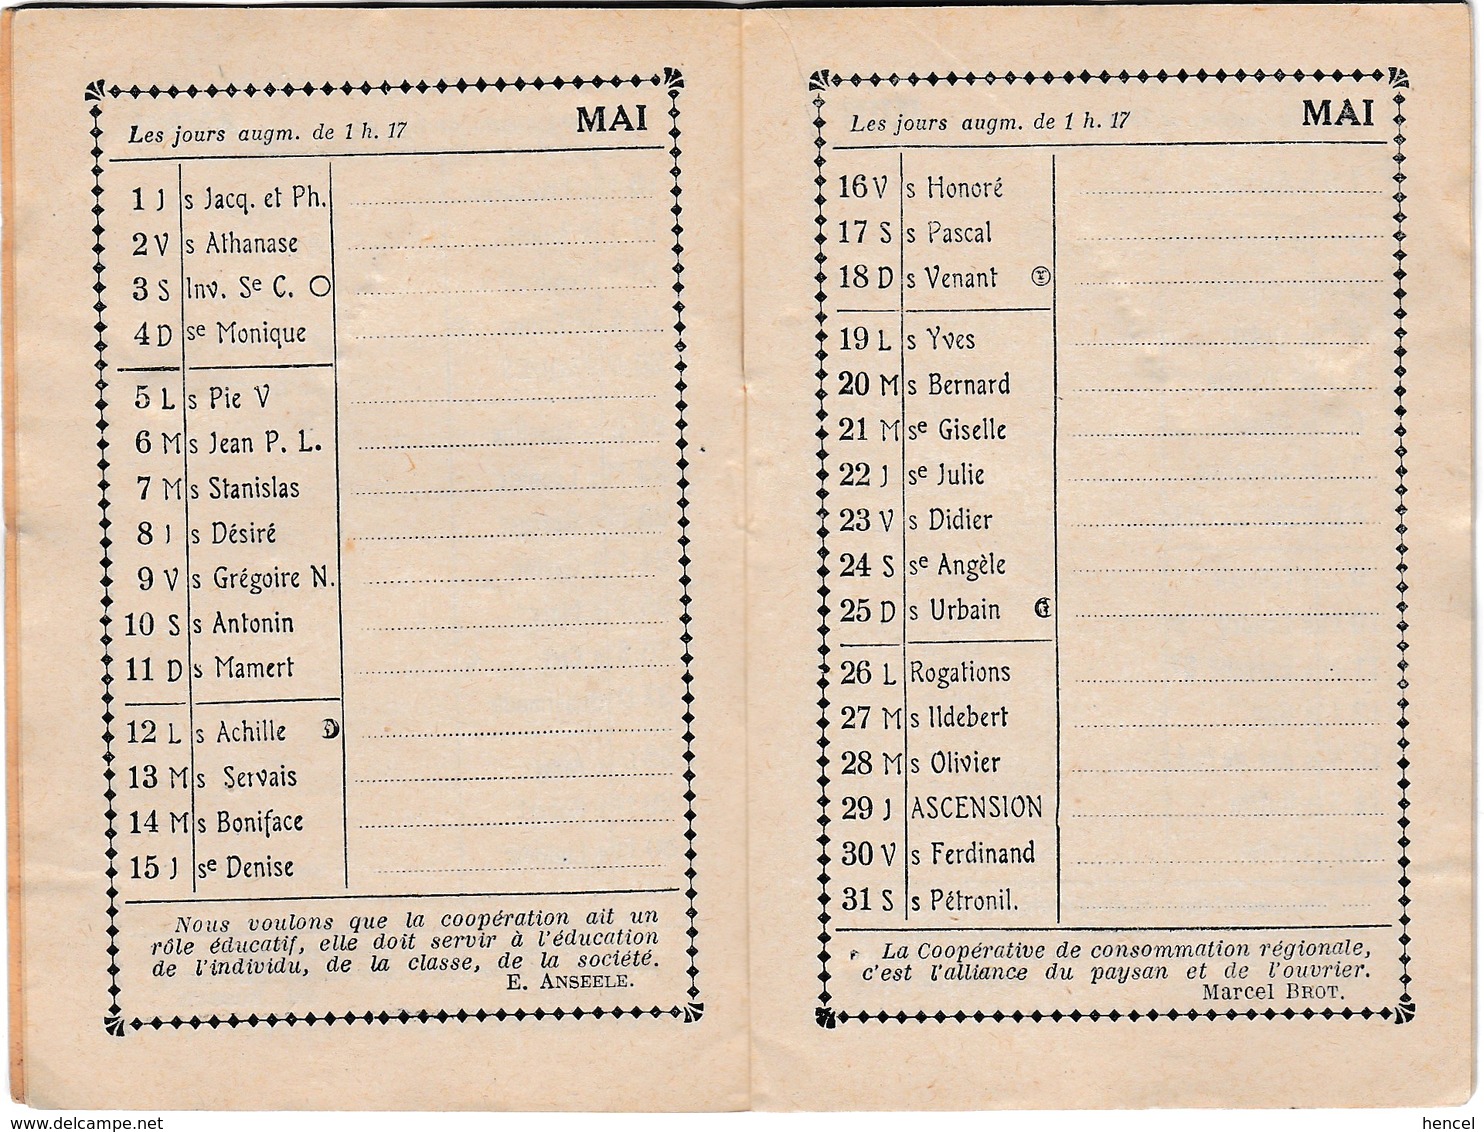 Les jours augm. de 1 h. 17 MAI
1 J s Jacq. et Ph.
2 V s Athanase
3 S Inv. Se C.
4 D se Monique
5 L s Pie V
6 M s Jean P. L.
7 M s Stanislas
8 J s Désiré
9 V s Grégoire N.
10 S s Antonin
11 D s Mamert
12 L s Achille
13 M s Servais
14 M s Boniface
15 J se Denise
Nous voulons que la coopération ait un
rôle éducatif, elle doit servir à l'éducation
de l'individu, de la classe, de la société.
E. ANSEELE.
Les jours augm. de 1 h. 17 MAI
16 V s Honoré
17 S s Pascal
18 D s Venant
19 L s Yves
20 M s Bernard
21 M se Giselle
22 J se Julie
23 V s Didier
24 S se Angèle
25 D s Urbain
26 L Rogations
27 M s Ildebert
28 M s Olivier
29 J ASCENSION
30 V s Ferdinand
31 S s Pétronil.
La Coopérative de consommation régionale,
c'est l'alliance du paysan et de l'ouvrier.
Marcel BROT.
www.delcampe.net
hencel